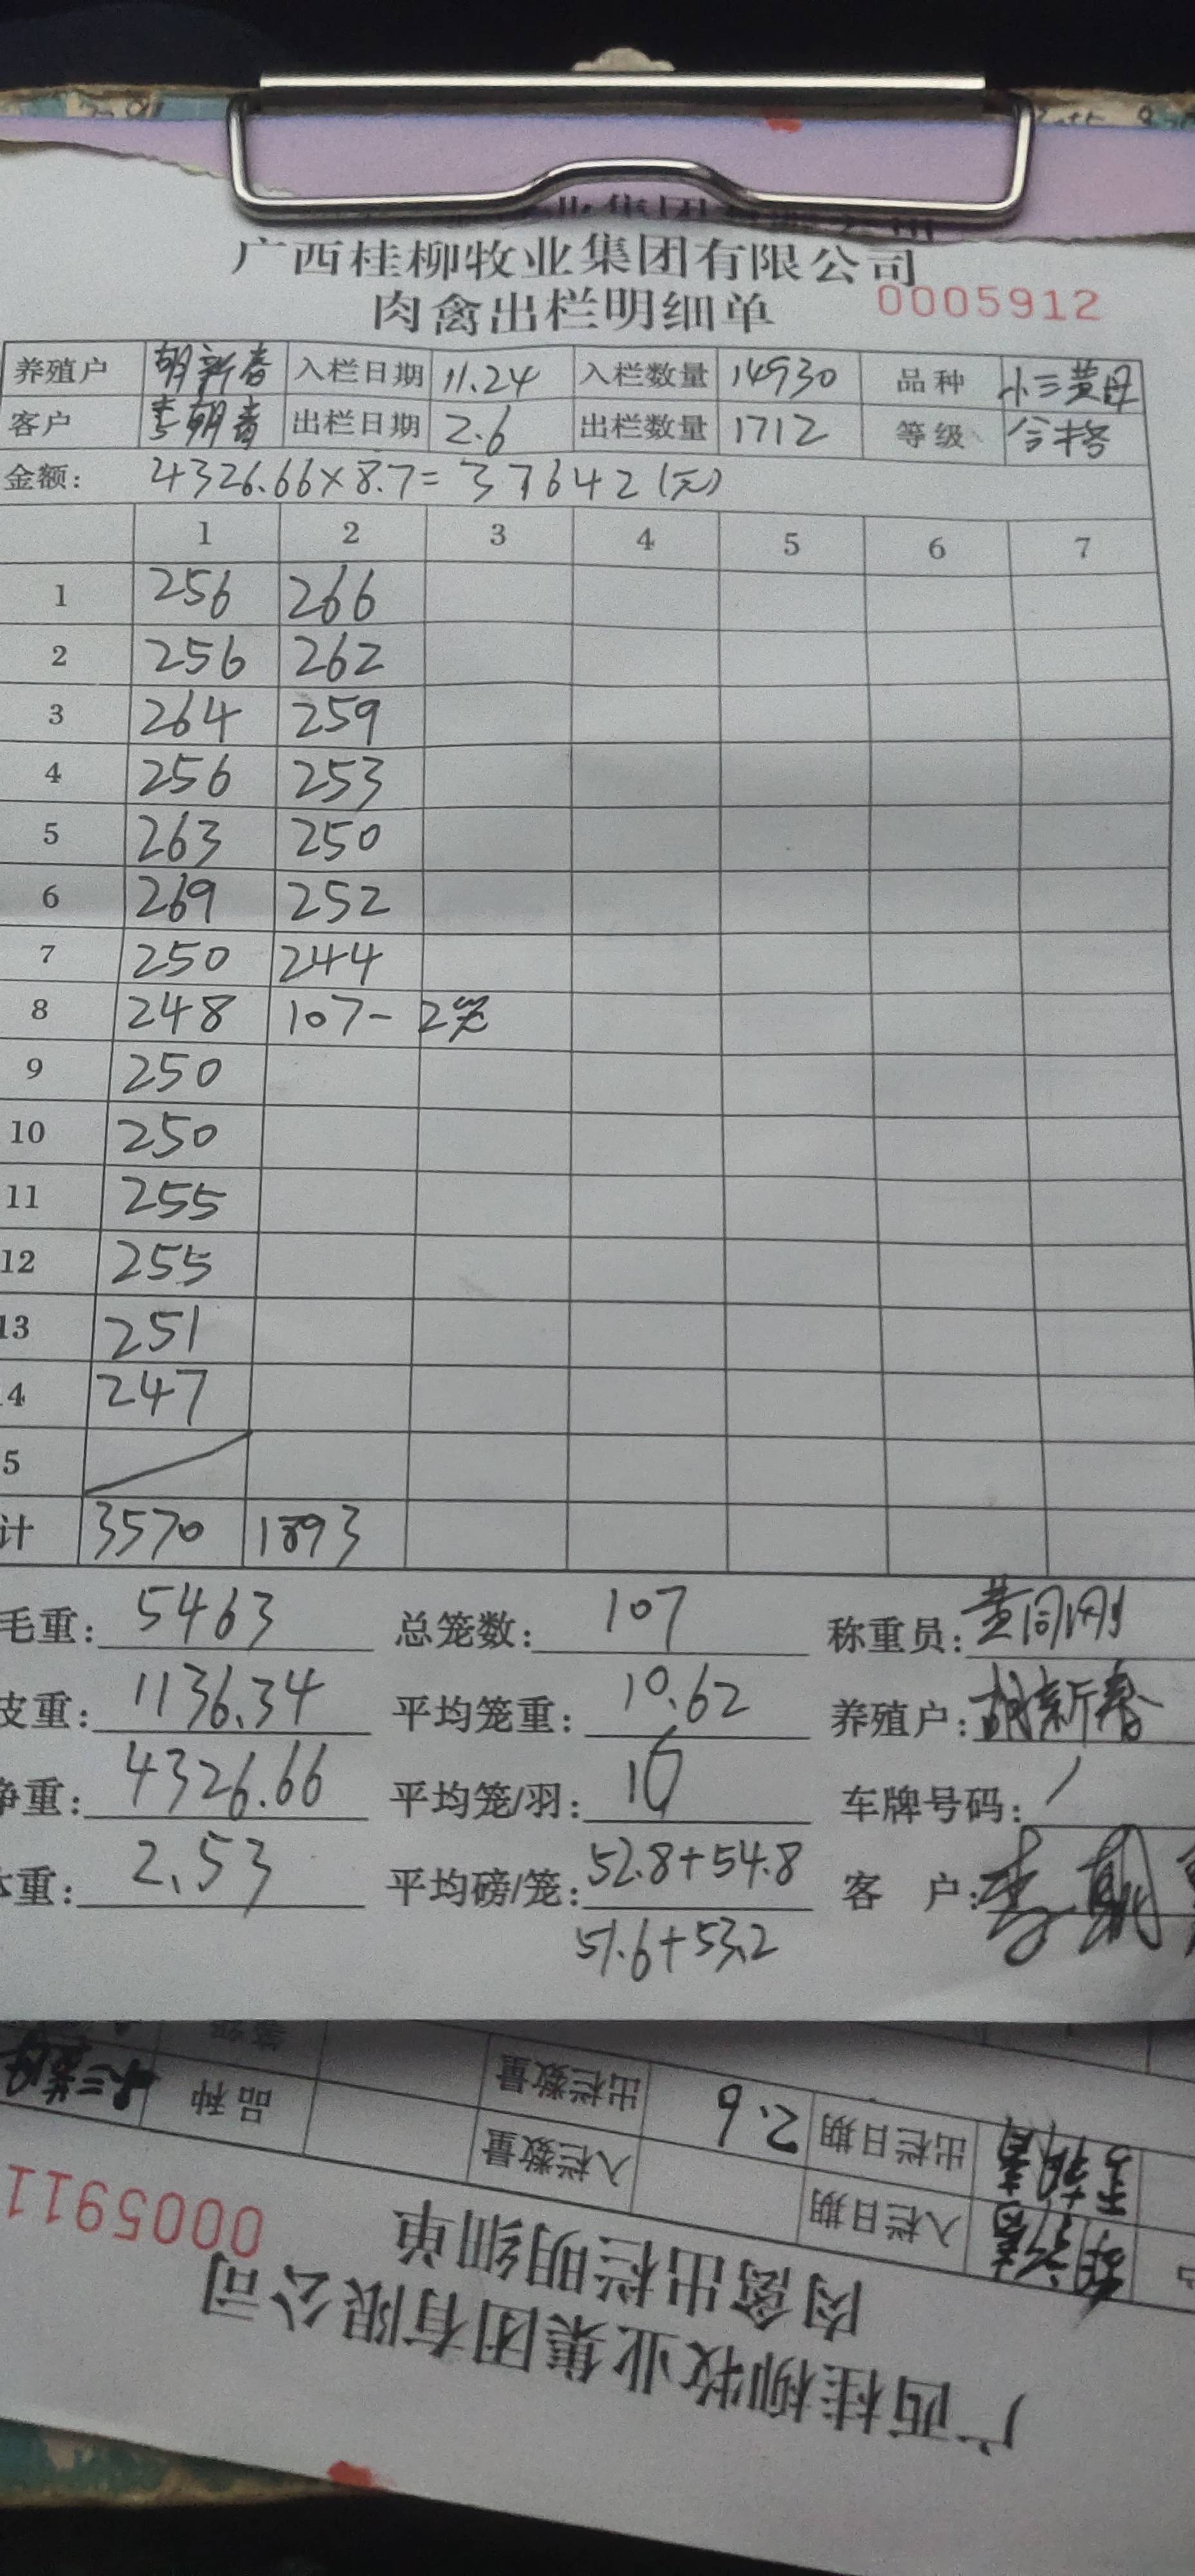 广西桂柳牧业集团有限公司
肉禽出栏明细单 0005912
养殖户 胡新春 入栏日期 11.24 入栏数量 14930 品种 小三黄母
客户 李朝春 出栏日期 2.6 出栏数量 1712 等级 合格
金额: 4326.66×8.7=37642(元)
1 2 3 4 5 6 7
1 256 266
2 256 262
3 264 259
4 256 253
5 263 250
6 269 252
7 250 244
8 248 107- 2笼
9 250
10 250
11 255
12 255
13 251
4 247
5
计 3570 1893
毛重: 5463 总笼数: 107 称重员:
皮重: 1136.34 平均笼重: 10.62 养殖户: 胡新春
净重: 4326.66 平均笼/羽: 16 车牌号码: /
重: 2.53 平均磅/笼: 52.8+54.8 客户: 李朝
51.6+53.2
广西桂柳牧业集团有限公司
肉禽出栏明细单
0005911
入栏日期 入栏数量 品种 小三黄母
出栏日期 2.6 出栏数量